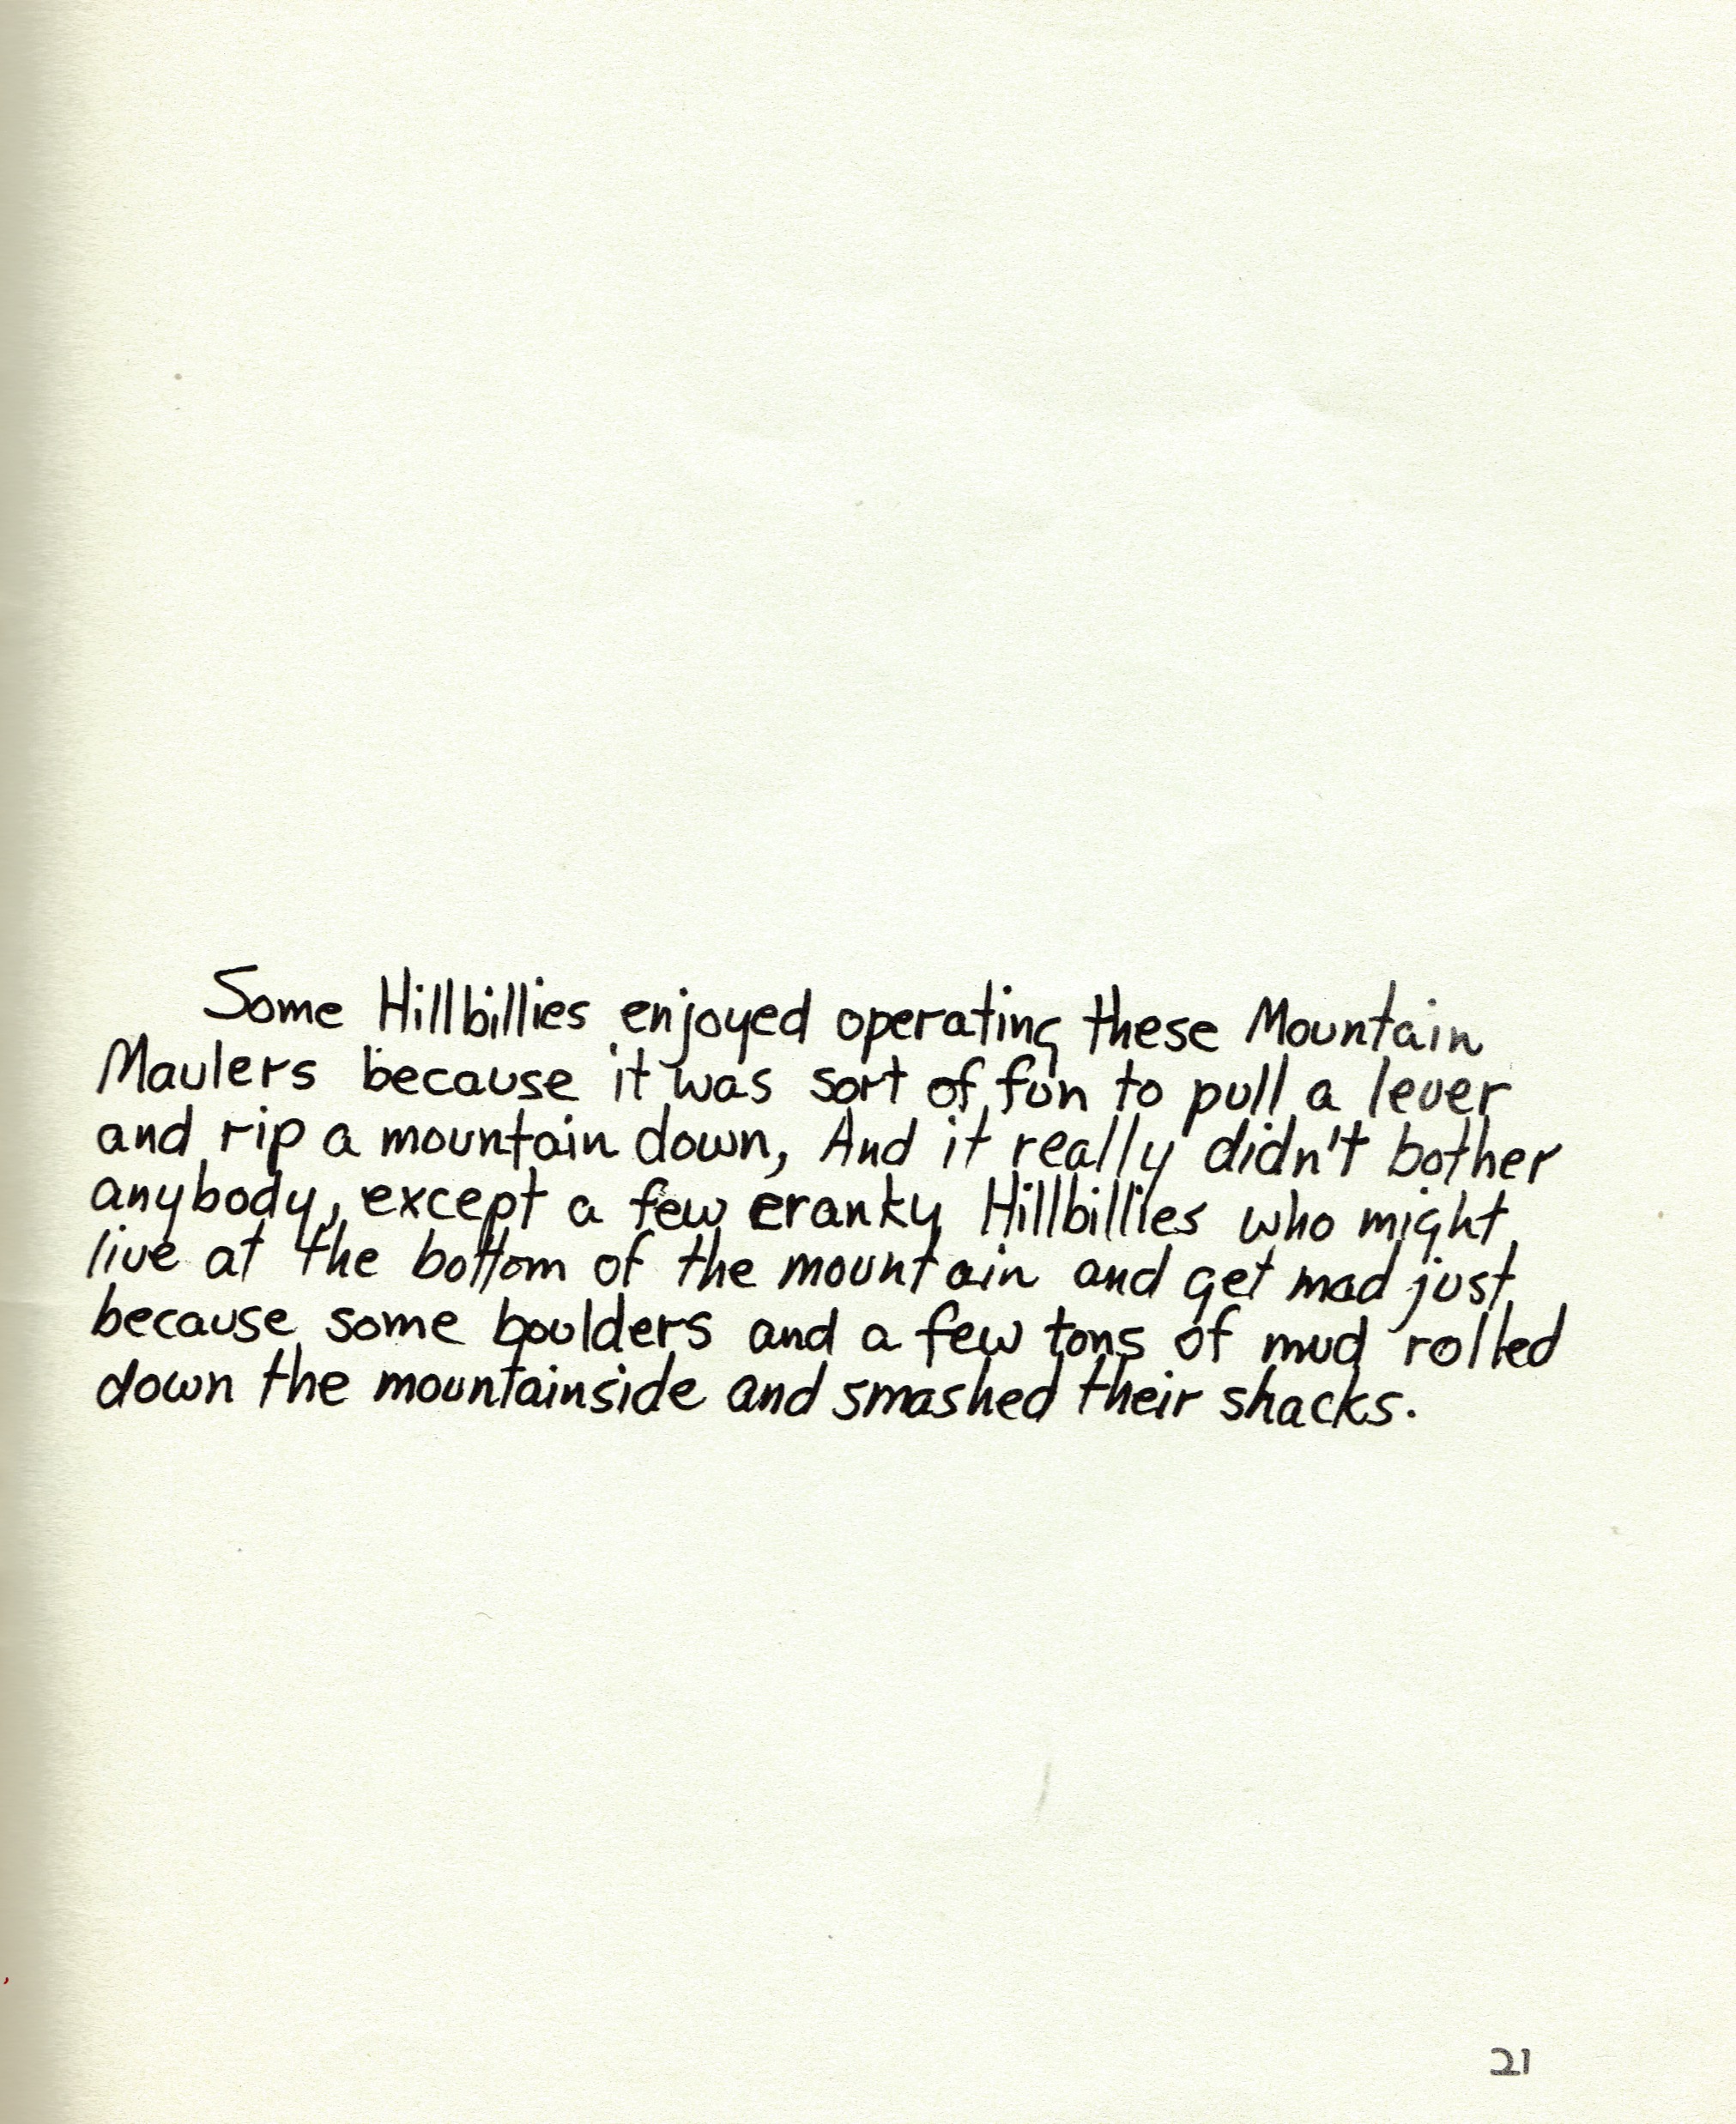 Some Hillbillies enjoyed operating these Mountain
Maulers because it was sort of fun to pull a lever
and rip a mountain down, And it really didn't bother
anybody, except a few cranky Hillbillies who might
live at the bottom of the mountain and get mad just
because some boulders and a few tons of mud rolled
down the mountainside and smashed their shacks.
21